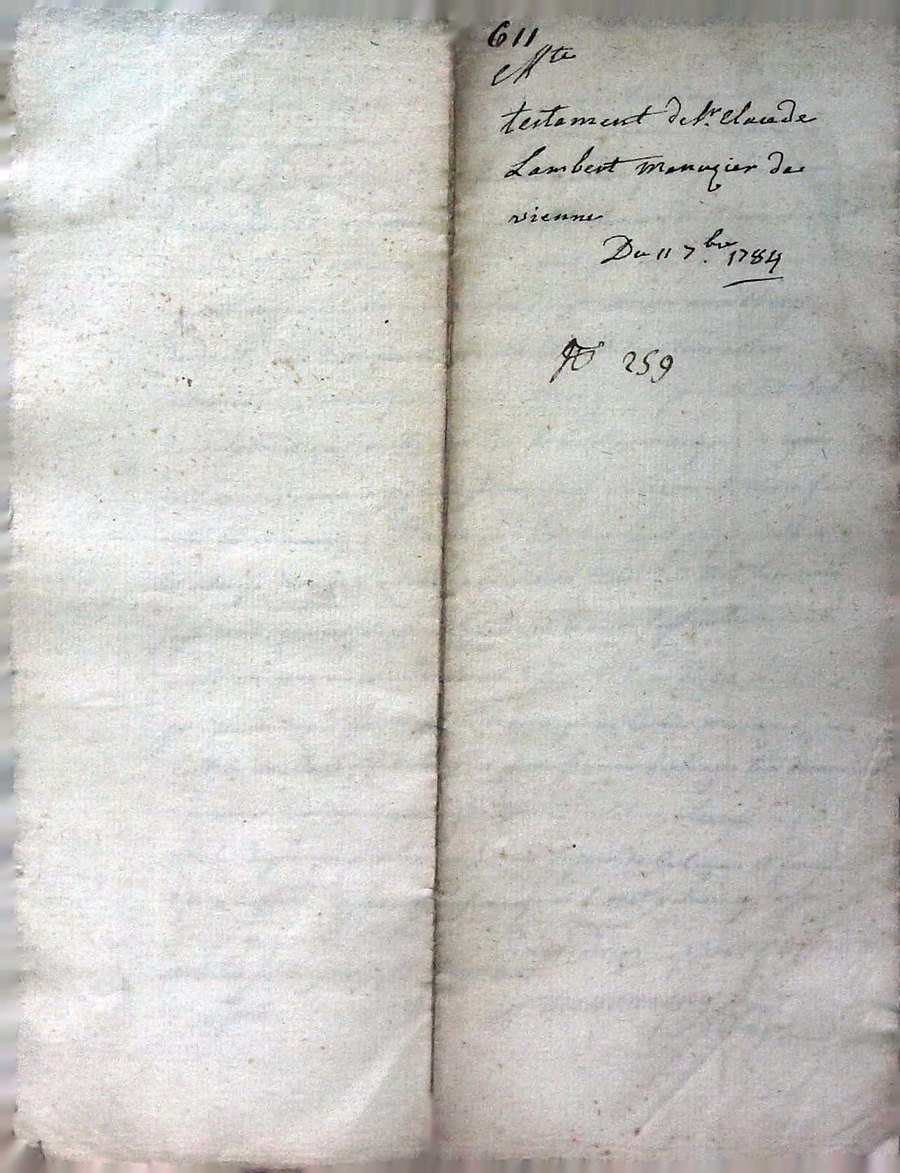 611
Mte
testament de Sr. Claude
Lambert menuzier de
vienne
Du 11 7.bre 1784
No 259